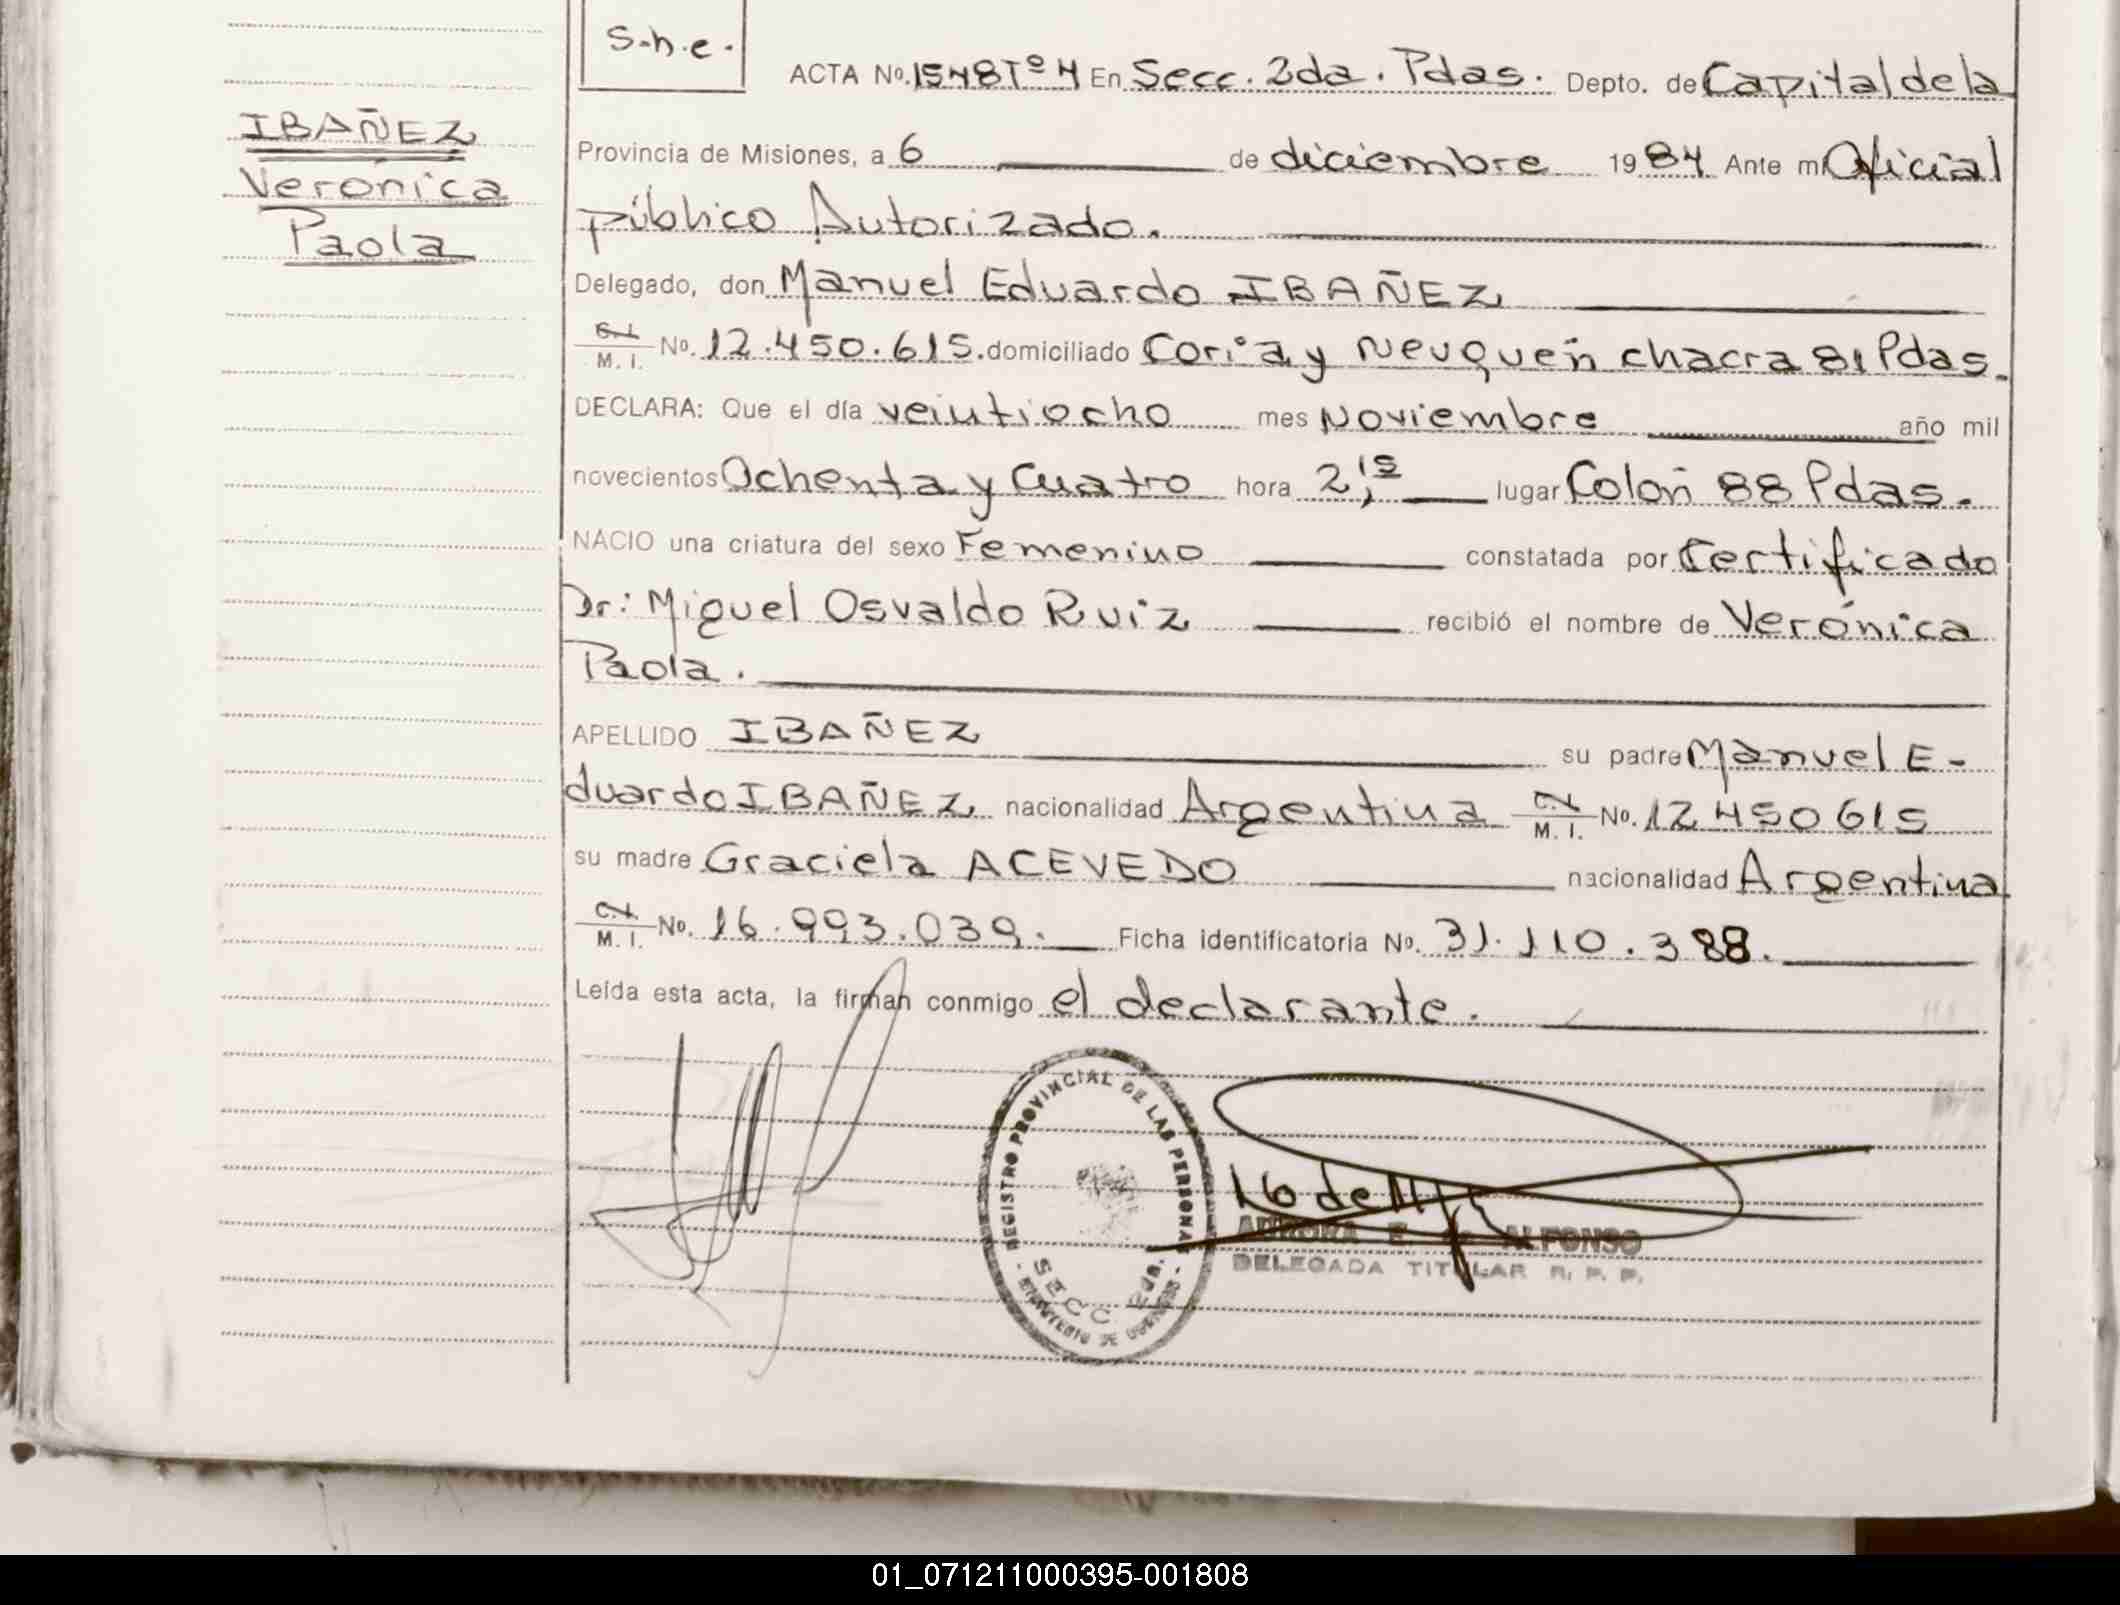 S.h.e.
ACTA No. 1548 Tº 4 En Secc. 2da. Pdas. Depto. de Capital de la
IBAÑEZ
Verónica
Paola
Provincia de Misiones, a 6 de diciembre 1984 Ante mi Oficial
público Autorizado.
Delegado, don Manuel Eduardo IBAÑEZ
C.I.
M. I. No. 12.450.615. domiciliado Coria y Neuquén chacra 81 Pdas.
DECLARA: Que el día veintiocho mes Noviembre año mil
novecientos Ochenta y Cuatro hora 2,15 lugar Colón 88 Pdas.
NACIO una criatura del sexo Femenino constatada por Certificado
Dr: Miguel Osvaldo Ruiz recibió el nombre de Verónica
Paola.
APELLIDO IBAÑEZ su padre Manuel E-
duardo IBAÑEZ nacionalidad Argentina C.I. M. I. No. 12450615
su madre Graciela ACEVEDO nacionalidad Argentina
C.I.
M. I. No. 16.993.039. Ficha identificatoria No. 31.110.388.
Leída esta acta, la firman conmigo el declarante.
REGISTRO PROVINCIAL DE LAS PERSONAS
SECC 2da.
AURORA E. ALFONSO
DELEGADA TITULAR R. P. P.
01_071211000395-001808